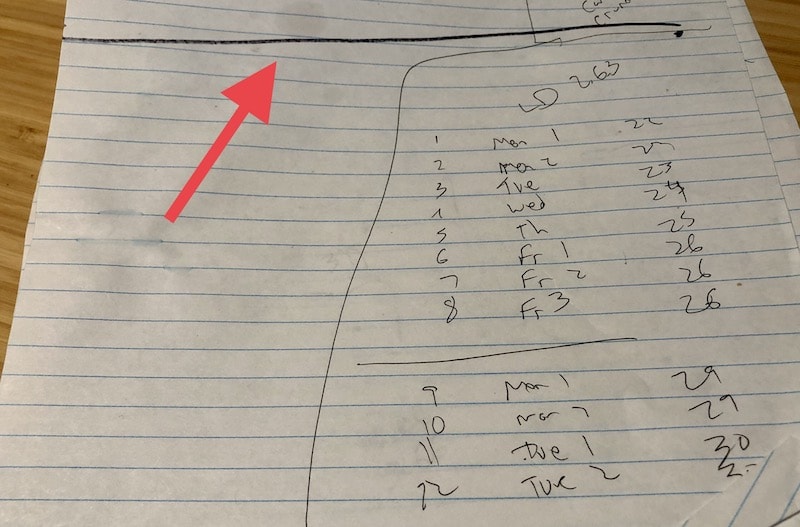 2.63
1 Mon 1 22
2 Mon 2 22
3 Tue 23
4 Wed 24
5 Th 25
6 Fr 1 26
7 Fr 2 26
8 Fr 3 26
9 Mon 1 29
10 Mon 2 29
11 Tue 1 30
12 Tue 2